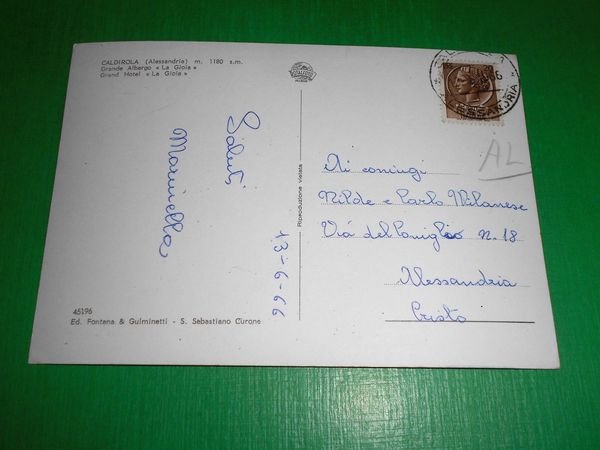 CALDIROLA (Alessandria) m. 1180 s.m.
Grande Albergo « La Gioia »
Grand Hotel « La Gioia »
Saluti
Marinella
13-6-66
Riproduzione vietata
ALESSANDRIA
AL
Ai coniugi
Nilde e Carlo Milanese
Via del Coniglio n. 18
Alessandria
Cristo
45196
Ed. Fontana & Gulminetti - S. Sebastiano Curone